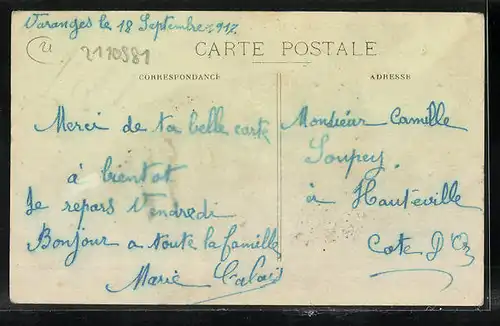 Varanges le 18 Septembre 1917
2110981
CARTE POSTALE
CORRESPONDANCE
ADRESSE
Merci de ta belle carte
à bientot
Je repars Vendredi
Bonjour a toute la famille
Marie
Monsieur Camille
à Hauteville
Cote D'Or